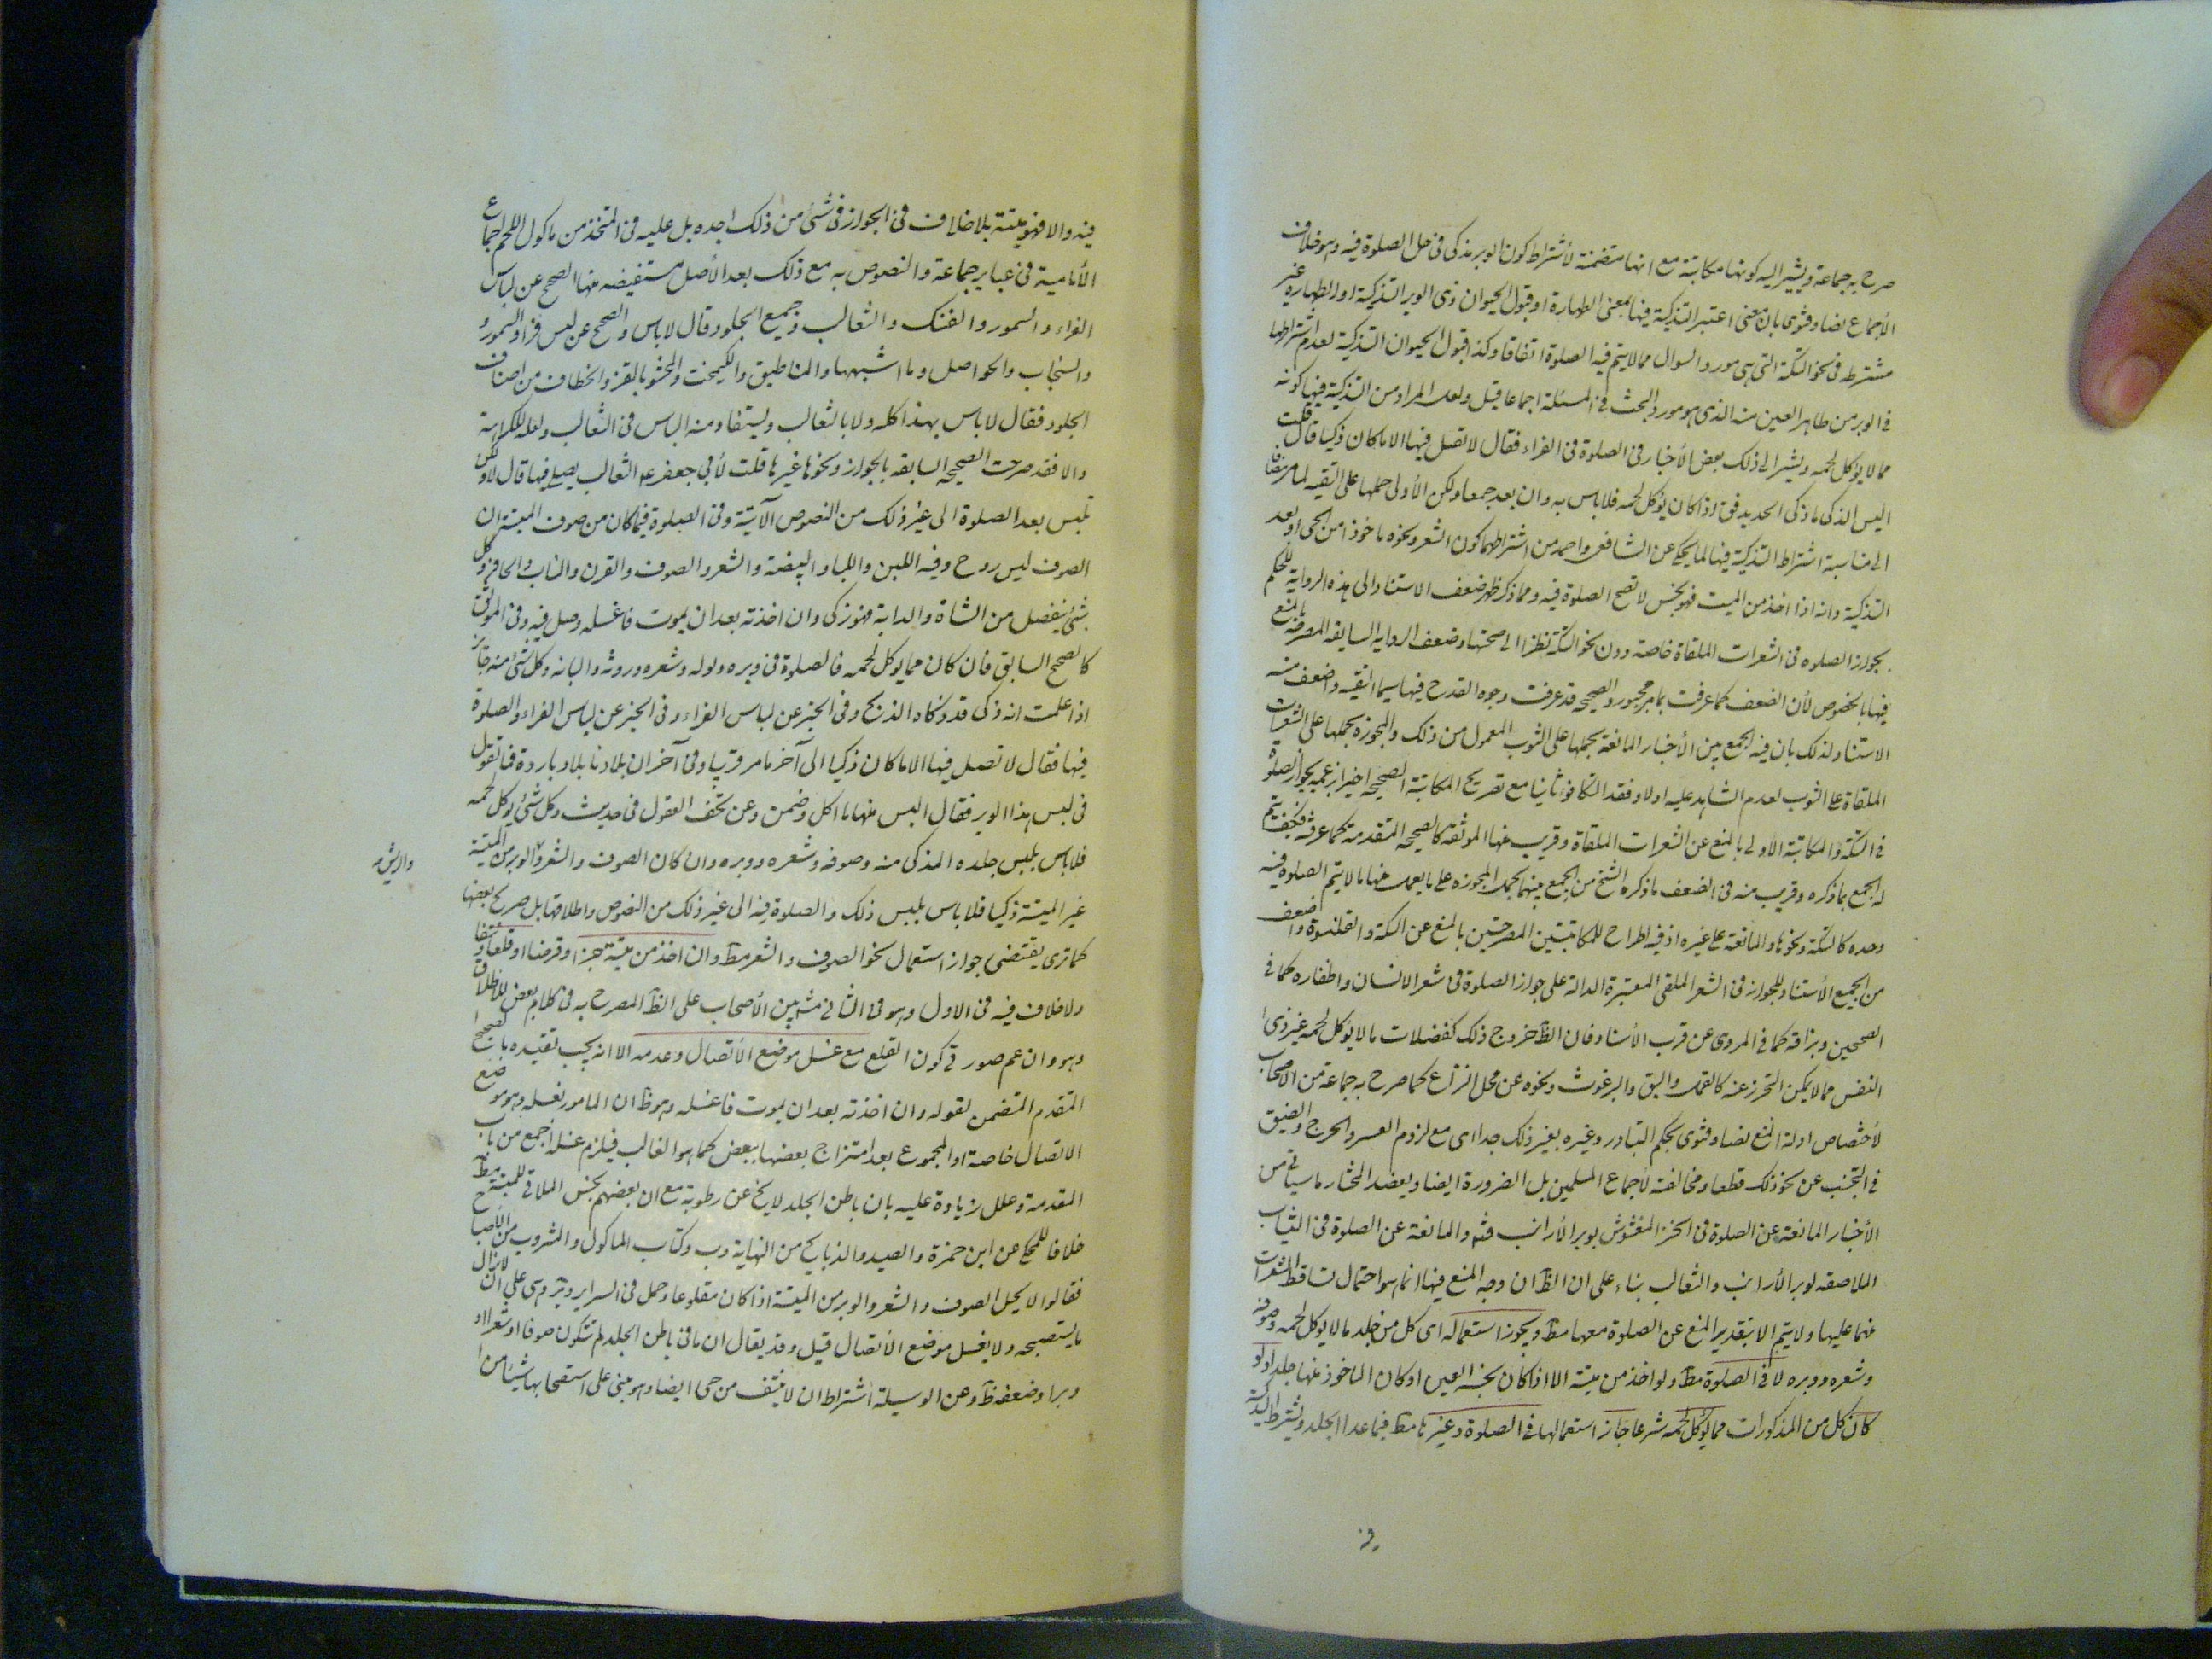 صرح به جماعة ويشير اليه كونها مكاتبة مع انها متضمنة لأشتراط كون الوبر مذكى في حل الصلوة فيه وهو خلاف
الأجماع نصا وفتوى بان معنى اعتبر التذكية فيها بمعنى الطهارة او قبول الحيوان ذي الوبر التذكية او الطهارة غير
مشترطه في نحو التكة التي هي مورد السوال مما لا يتم فيه الصلوة اتفاقا وكذا قبول الحيوان التذكية لعدم اشتراطها
في الوبر من طاهر العين منه الذي هو مورد البحث في المسئلة اجماعا قيل ولعل المراد من التذكية فيها كونه
مما لا يؤكل لحمه ويشير الى ذلك بعض الأخبار في الصلوة في الفراء فقال لا تصل فيها الا ما كان ذكيا قال قلت
اليس الذكي ما ذكي الحديد فق اذا كان يؤكل لحمه فلا باس به وان بعد جمعا ولكن الأولى حملها على التقيه لما مر مضافا
الى مناسبة اشتراط التذكية فيها لما يحكى عن الشافعي واحمد من اشتراطهما كون الشعر ونحوه ماخوذا من الحي او بعد
التذكية وانه اذا اخذ من الميت فهو نجس لا تصح الصلوة فيه ومما ذكر ظهر ضعف الاستناد الى هذه الرواية للحكم
بجواز الصلوه في الشعرات الملقاة خاصة دون نحو التكة نظرا الى صحتها وضعف الروايه السابقه المصرحة بالمنع
فيها بالخصوص لأن الضعف كما عرفت بما مر مجبور والصحيحه قد عرفت وجوه القدح فيها سيما التقيه واضعف منه
الاستناد لذلك بان فيه الجمع بين الأخبار المانعة بحملها على الثوب المعمول من ذلك والمجوزه بحملها على الشعرات
الملقاة على الثوب لعدم الشاهد عليه اولا وفقد التكافؤ ثانيا مع تصريح المكاتبة الصحيحه بجواز الصلوة
في التكة والمكاتبة الأولى بالمنع عن الشعرات الملقاة وقريب منها الموثقه كالصحيحه المتقدمة كما عرفته فكيف يتم
له الجمع بما ذكره وقريب منه في الضعف ما ذكره الشيخ من الجمع بينهما بحمل المجوزه على ما يعمل منها ما لا يتم الصلوة فيه
وحده كالتكة ونحوها والمانعة على غيره اذ فيه اطراح للمكاتبتين المصرحتين بالمنع عن التكة والقلنسوة واضعف
من الجميع الأستناد للجواز في الشعر الملقى المعتبرة الدالة على جواز الصلوة في شعر الانسان واظفاره كما في
الصحيحين وبزاقه كما في المروي عن قرب الأسناد فان الظ خروج ذلك كفضلات ما لا يؤكل لحمه غير ذي
النفس مما لا يمكن التحرز عنه كالقمل والبق والبرغوث ونحوه عن محل النزاع كما صرح به جماعة من الأصحاب
لأختصاص ادلة المنع نصا وفتوى بحكم التبادر وغيره بغير ذلك جدا اى مع لزوم العسر والحرج والضيق
في التجنب عن نحو ذلك قطعا ومخالفته لأجماع المسلمين بل الضرورة ايضا ويعضد المختار ما سياتي من
الأخبار المانعة عن الصلوة في الخز المغشوش بوبر الأرانب فثم والمانعة عن الصلوة في الثياب
الملاصقه لوبر الأرانب والثعالب بناء على ان الظ ان وجه المنع فيها انما هو احتمال تساقط الشعرات
منهما عليها ولا يتم الا بتقدير المنع عن الصلوة معها مط ويجوز استعماله اى كل من جلد ما لا يؤكل لحمه وصوفه
وشعره ووبره لا في الصلوة مط ولو اخذ من ميتة الا اذا كان نجس العين او كان الماخوذ منها جلدا ولو
كان كل من المذكورات مما يؤكل لحمه شرعا جاز استعمالها في الصلوة وغيرها مط فيما عدا الجلد ويشترط التذكية
فيه والا فهو ميتة بلا خلاف في الجواز في شئ من ذلك اجده بل عليه في المتخذ من ماكول اللحم اجماع
الأمامية في عبائر جماعة والنصوص به مع ذلك بعد الأصل مستفيضه منها الصحيح عن لباس
الفراء والسمور والفنك والثعالب وجميع الجلود قال لا باس والصحيح عن لبس فراء السمور و
والسنجاب والحواصل وما اشبهها والمناطيق والكيمخت والمحشو بالقز والخفاف من اصناف
الجلود فقال لا باس بهذا كله ولا بالثعالب ويستفاد منه الباس في الثعالب ولعله للكراهة
والا فقد صرحت الصحيحه السابقه بالجواز ونحوها غيرها قلت لأبي جعفر ع الثعالب يصلى فيها قال لا ولكن
تلبس بعد الصلوة الى غير ذلك من النصوص الآتية وفي الصلوة فيما كان من صوف الميتة ان
الصوف ليس روح وفيه اللبن واللباء والبيضة والشعر والصوف والقرن والناب والحافر وكل
شئ ينفصل من الشاة والدابة فهو زكى وان اخذته بعد ان يموت فاغسله وصل فيه وفي الموثق
كالصحيح السابق فان كان مما يؤكل لحمه فالصلوة في وبره وبوله وشعره وروثه والبانه وكل شئ منه جائز
اذا علمت انه ذكي قد ذكاه الذبح وفي الخبر عن لباس الفراء وفي الخبر عن لباس الفراء والصلوة
فيها فقال لا تصل فيها الا ما كان ذكيا الى آخر ما مر قريبا وفي آخر ان بلادنا بلاد باردة فما تقول
في لبس هذا الوبر فقال البس منها ما اكل وضمن وعن تحف العقول في حديث وكل شئ يؤكل لحمه
فلا باس بلبس جلده المذكى منه وصوفه وشعره ووبره وان كان الصوف والشعر والوبر من الميتة
والريش مه
غير الميتة ذكيا فلا باس بلبس ذلك والصلوة فيه الى غير ذلك من النصوص واطلاقها بل صريح بعضها
كما ترى يقتضي جواز استعمال نحو الصوف والشعر مط وان اخذ من ميتة جزا او قرضا او قلعا ونتفا
ولا خلاف فيه في الاول وهو في الثاني مش بين الأصحاب على الظ المصرح به في كلام بعض للأطلاق
وهو وان عم صورتي كون القلع مع غسل موضع الأتصال وعدمه الا انه يجب تقييده بالصحيح
المتقدم المتضمن لقوله وان اخذته بعد ان يموت فاغسله وهو ظ ان المامور بغسله هو موضع
الاتصال خاصة او المجموع بعد امتزاج بعضها ببعض كما هو الغالب فيلزم غسل اجمع من باب
المقدمة وعلل زيادة عليه بان باطن الجلد لا يخ عن رطوبة مع ان بعضهم نجس الملاقي للميتة مط
خلافا للمحكي عن ابن حمزة والصيد والذبايح من النهاية وب وكتاب الماكول والمشروب من الأصباح
فقالوا لا يحل الصوف والشعر والوبر من الميتة اذا كان مقلوعا وحمل في السرائر على ان لا يزال
ما يستصحبه ولا يغسل موضع الأتصال قيل وقد يقال ان ما في باطن الجلد لم تتكون صوفا او شعرا او
وبرا وضعفه ظ وعن الوسيلة اشتراط ان لا ينتف من حي ايضا وهو مبني على استصحابها شيئا من ا